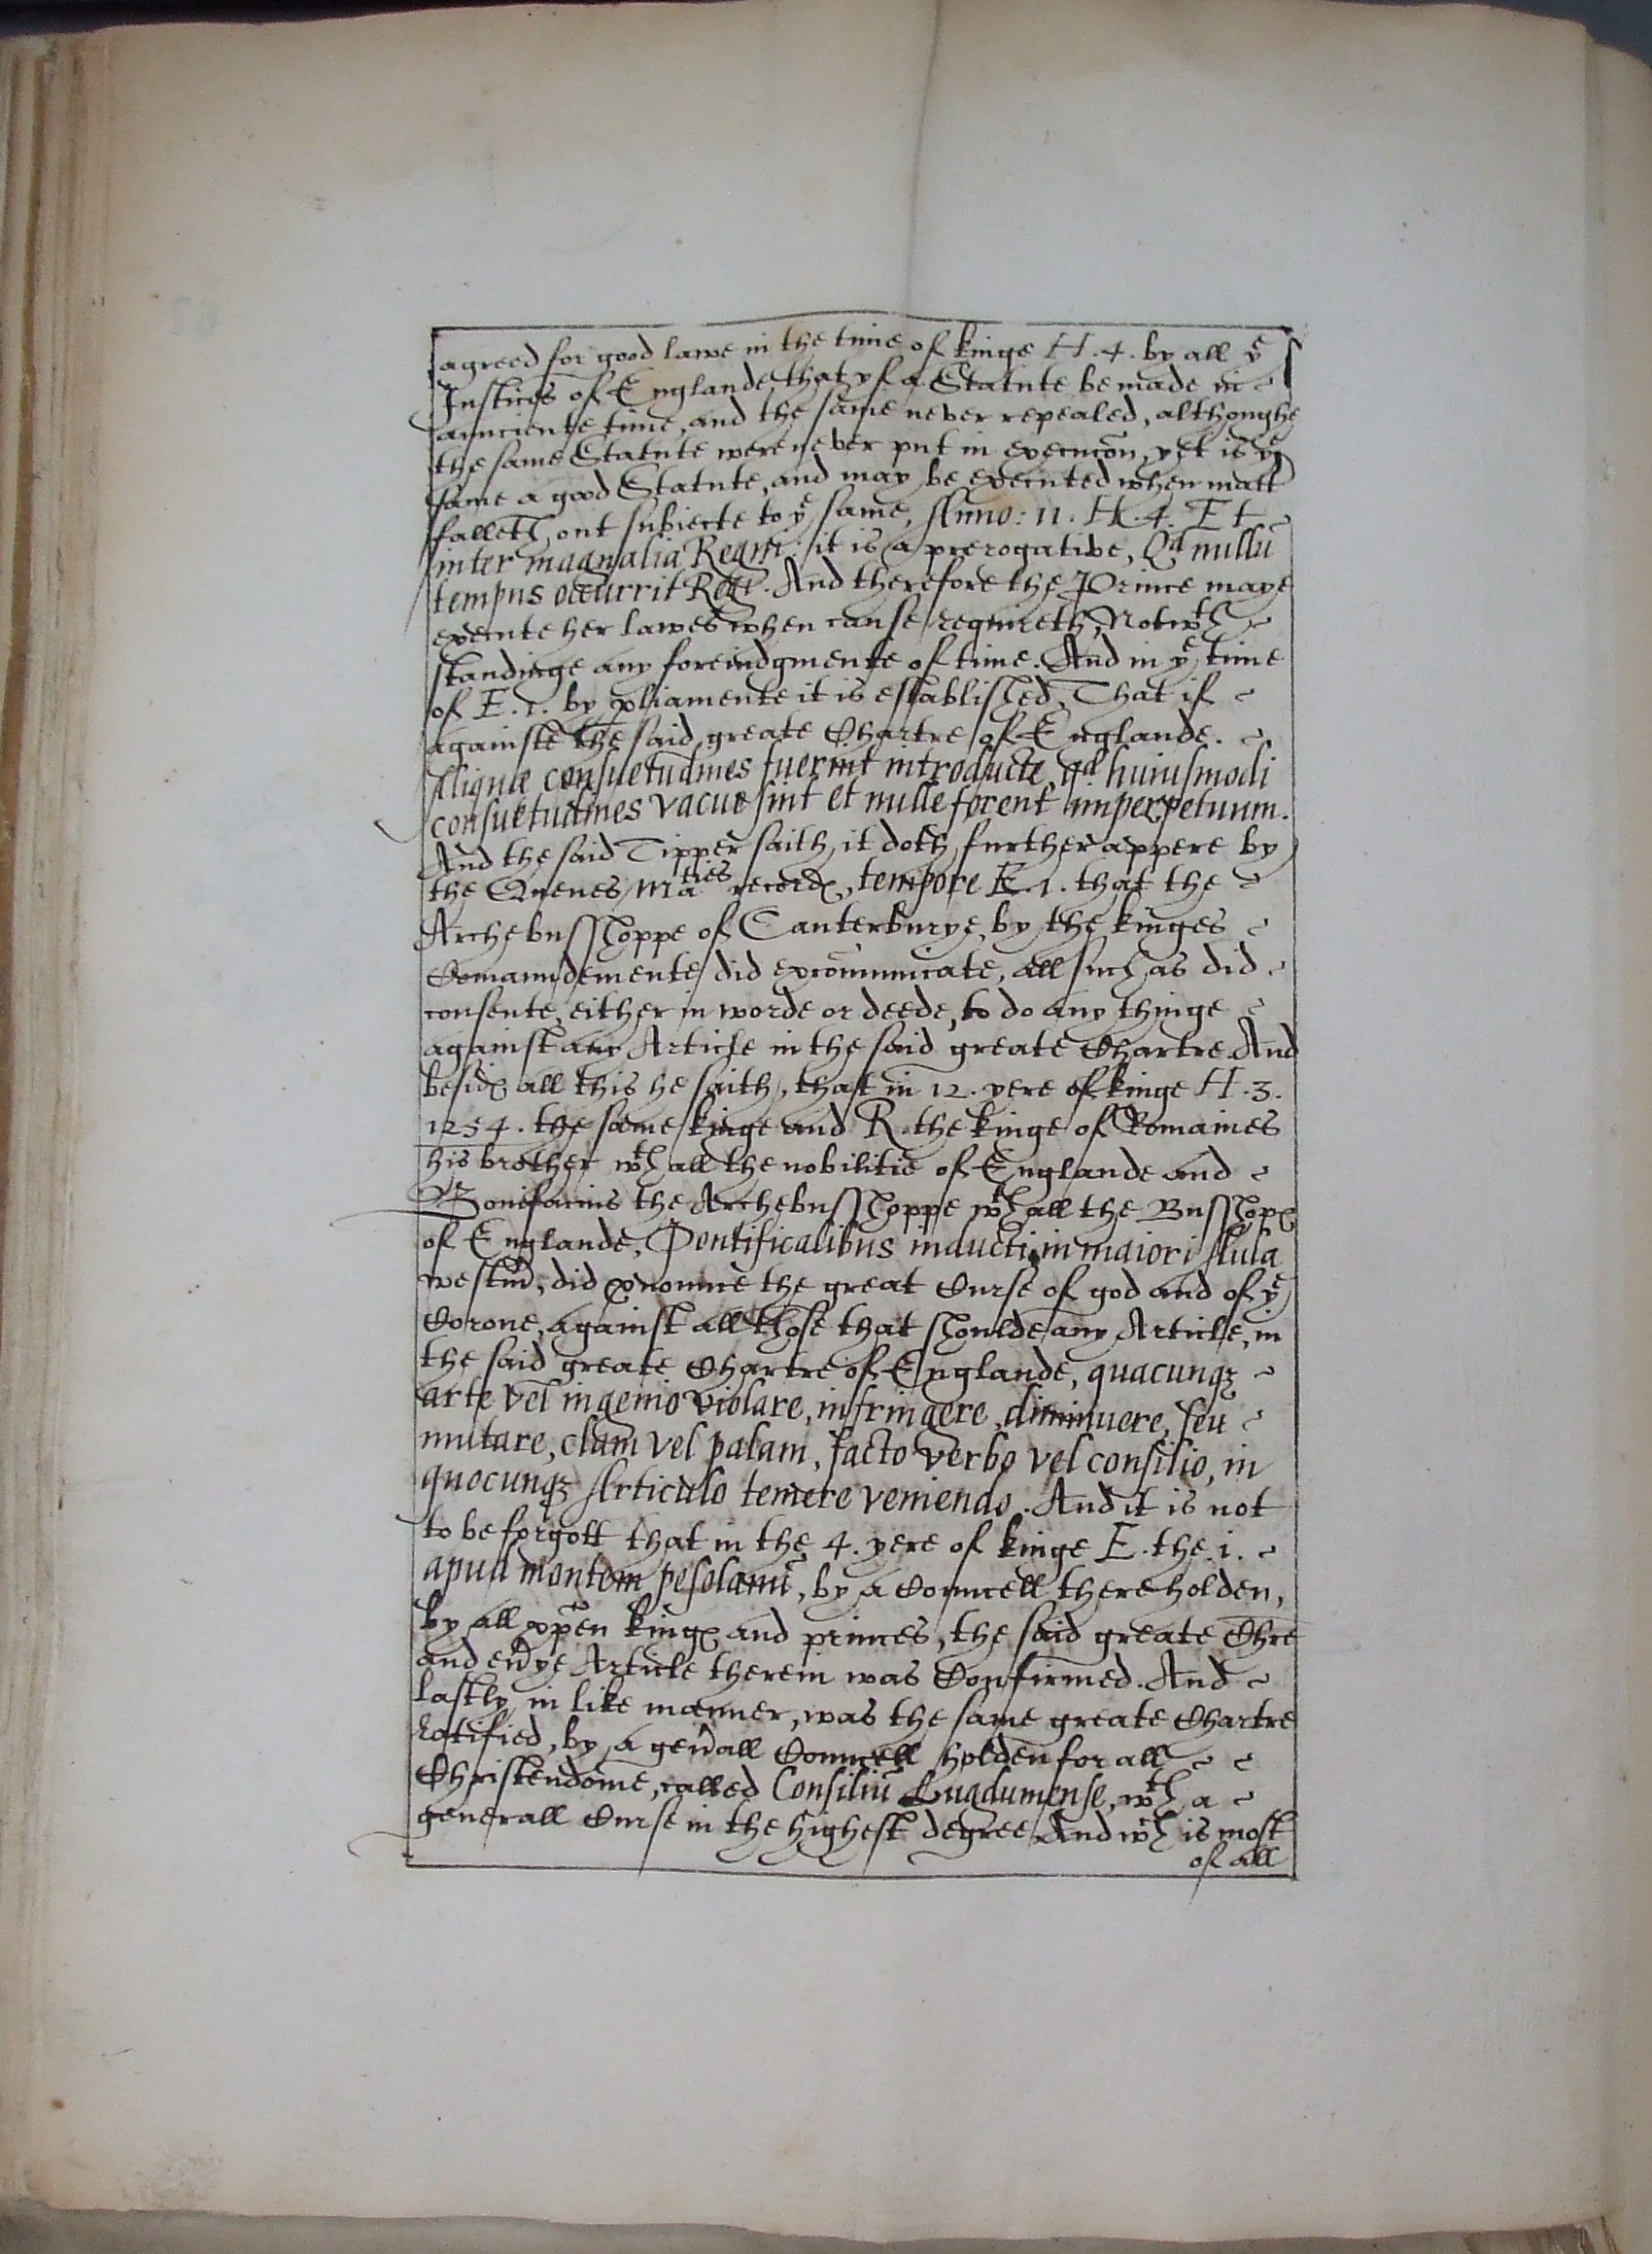 agreed for good lawe in the time of kinge H. 4. by all yͤ
Justices of Englande that yf a Statute be made in
aunciente time, and the same never repealed, althoughe
the same Statute were never put in execucõn, yet is yͤ
same a good Statute, and may be executed when matt
falleth out subiecte to yͤ same, Anno: 11. H. 4. Et
inter magnalia Regni: it is a prerogative, Qd nullũ
tempus occurrit Regi. And therefore the Prince maye
execute her lawes when cause requireth, Notwth
standinge any foreiudgmente of time. And in yͤ time
of E. 1. by pliamente it is established, That if
againste the said greate Chartre of Englande.
Aliquæ consuetudines fuerint introducte, qd huiusmodi
consuetudines vacue sint et nulle forent imperpetuum.
And the said Tipper saith, it doth further appere by
the Quenes Maties recordꝭ, tempore E. 1. that the
Archebusshoppe of Canterburye, by the kinges
Comaundemente did excõmunicate, all such as did
consente, either in worde or deede, to do any thinge
against any Article in the said greate Chartre. And
besidꝭ all this he saith, that in 12. yere of kinge H. 3.
1254. the same kinge and R. the kinge of Romaines
his brother wth all the nobilitie of Englande and
Bonifacius the Archebusshoppe wth all the Busshopꝭ
of Englande, Pontificalibus inducti in maiori Aula
westm̃, did pnounce the great Curse of god and of yͤ
Corone, against all those that shoulde any Article, in
the said greate Chartre of Englande, quacunqꝫ
arte vel ingenio violare, infringere, diminuere, seu
mutare, clam vel palam, facto verbo vel consilio, in
quocunqꝫ Articulo temere veniendo. And it is not
to be forgott that in the 4. yere of kinge E. the. i.
apud montem pesolanũ, by a Councell there holden,
by all xp̃en kingꝭ and princes, the said greate Chre
and eũye Article therein was Confirmed. And
lastly, in like manner, was the same greate Chartre
ratified, by a geñall Councell holden for all
Christendome, called Consiliũ Lugdumense, wth a
generall Curse in the highest degree. And wch is most
of all